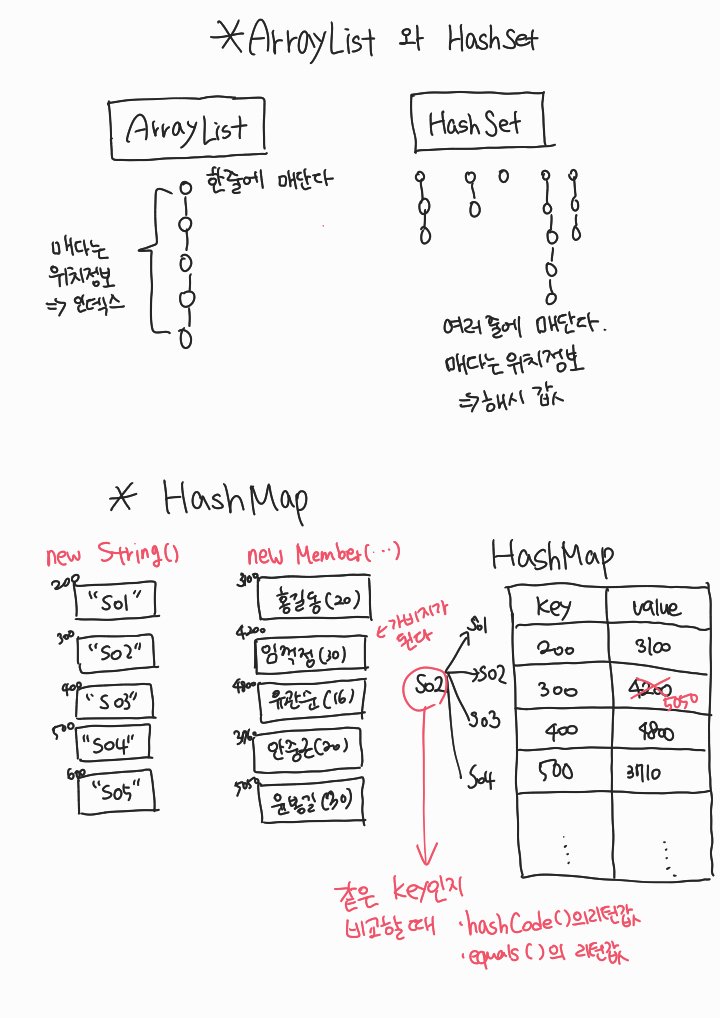 *ArrayList 와 HashSet
ArrayList
한줄에 매단다
매다는
위치정보
=> 인덱스
HashSet
여러 줄에 매단다.
매다는 위치정보
=> 해시 값
* HashMap
new String()
200
"S01"
300
"S02"
400
"S03"
500
"S04"
600
"S05"
new Member(...)
3100
홍길동(20)
4200
임꺽정(30)
<-가비지가
된다
4800
유관순(16)
안중근(20)
5050
윤봉길(30)
S02
S01
S02
S03
S04
HashMap
key value
200 3100
300 4200 5050
400 4800
500 3710
같은 key인지
비교할때 ·hashCode()의리턴값
·equals()의 리턴값